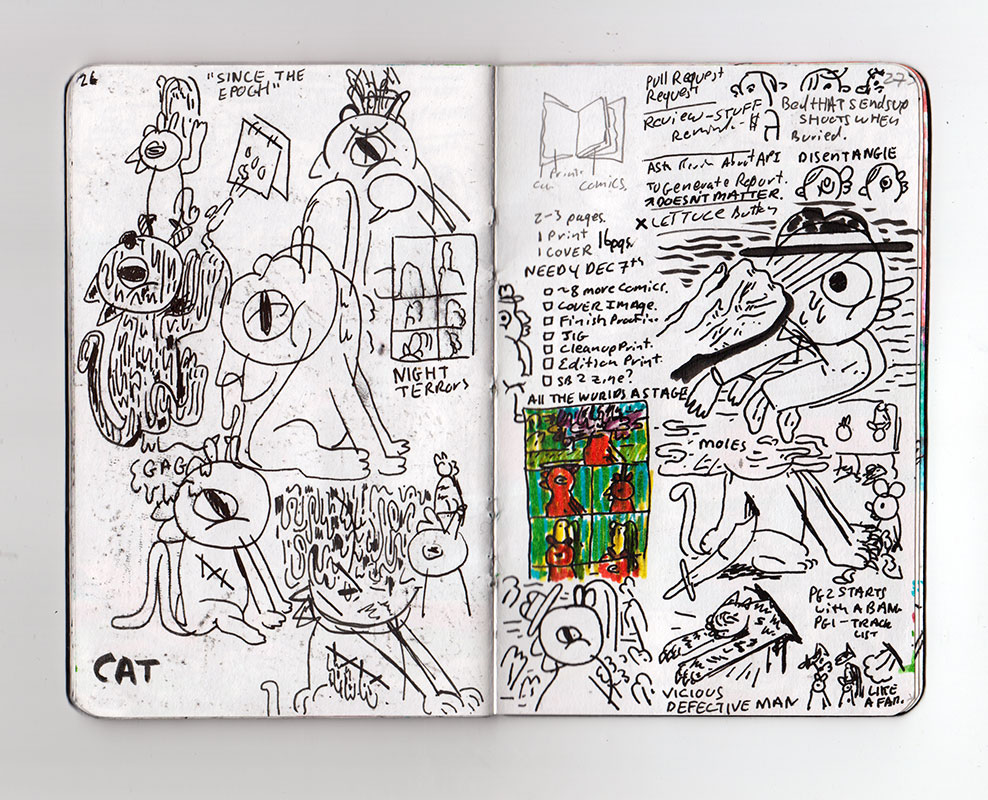 26
"SINCE THE
EPOCH"
NIGHT
TERRORS
GAG
CAT
27
Pull Request
Request
Review-STUFF
Remind.
Bed THAT SENDS up
SHOOTS WHEN
Buried.
ASK About API
To Generate Report.
DOESN'T MATTER.
X LETTUCE Butter
DISENTANGLE
Print
Comics.
2-3 pages.
1 Print
1 COVER 16pgs.
NEED 4 DEC 7th
~8 more Comics.
COVER IMAGE.
Finish
JIG
Cleanup Print.
Edition Print.
SB 2 zine?
All THE WORLDS A STAGE
MOLES
PG2 STARTS
with A BANG
PG1-TRACK
LIST
VICIOUS
DEFECTIVE MAN
LIKE
A FAN.